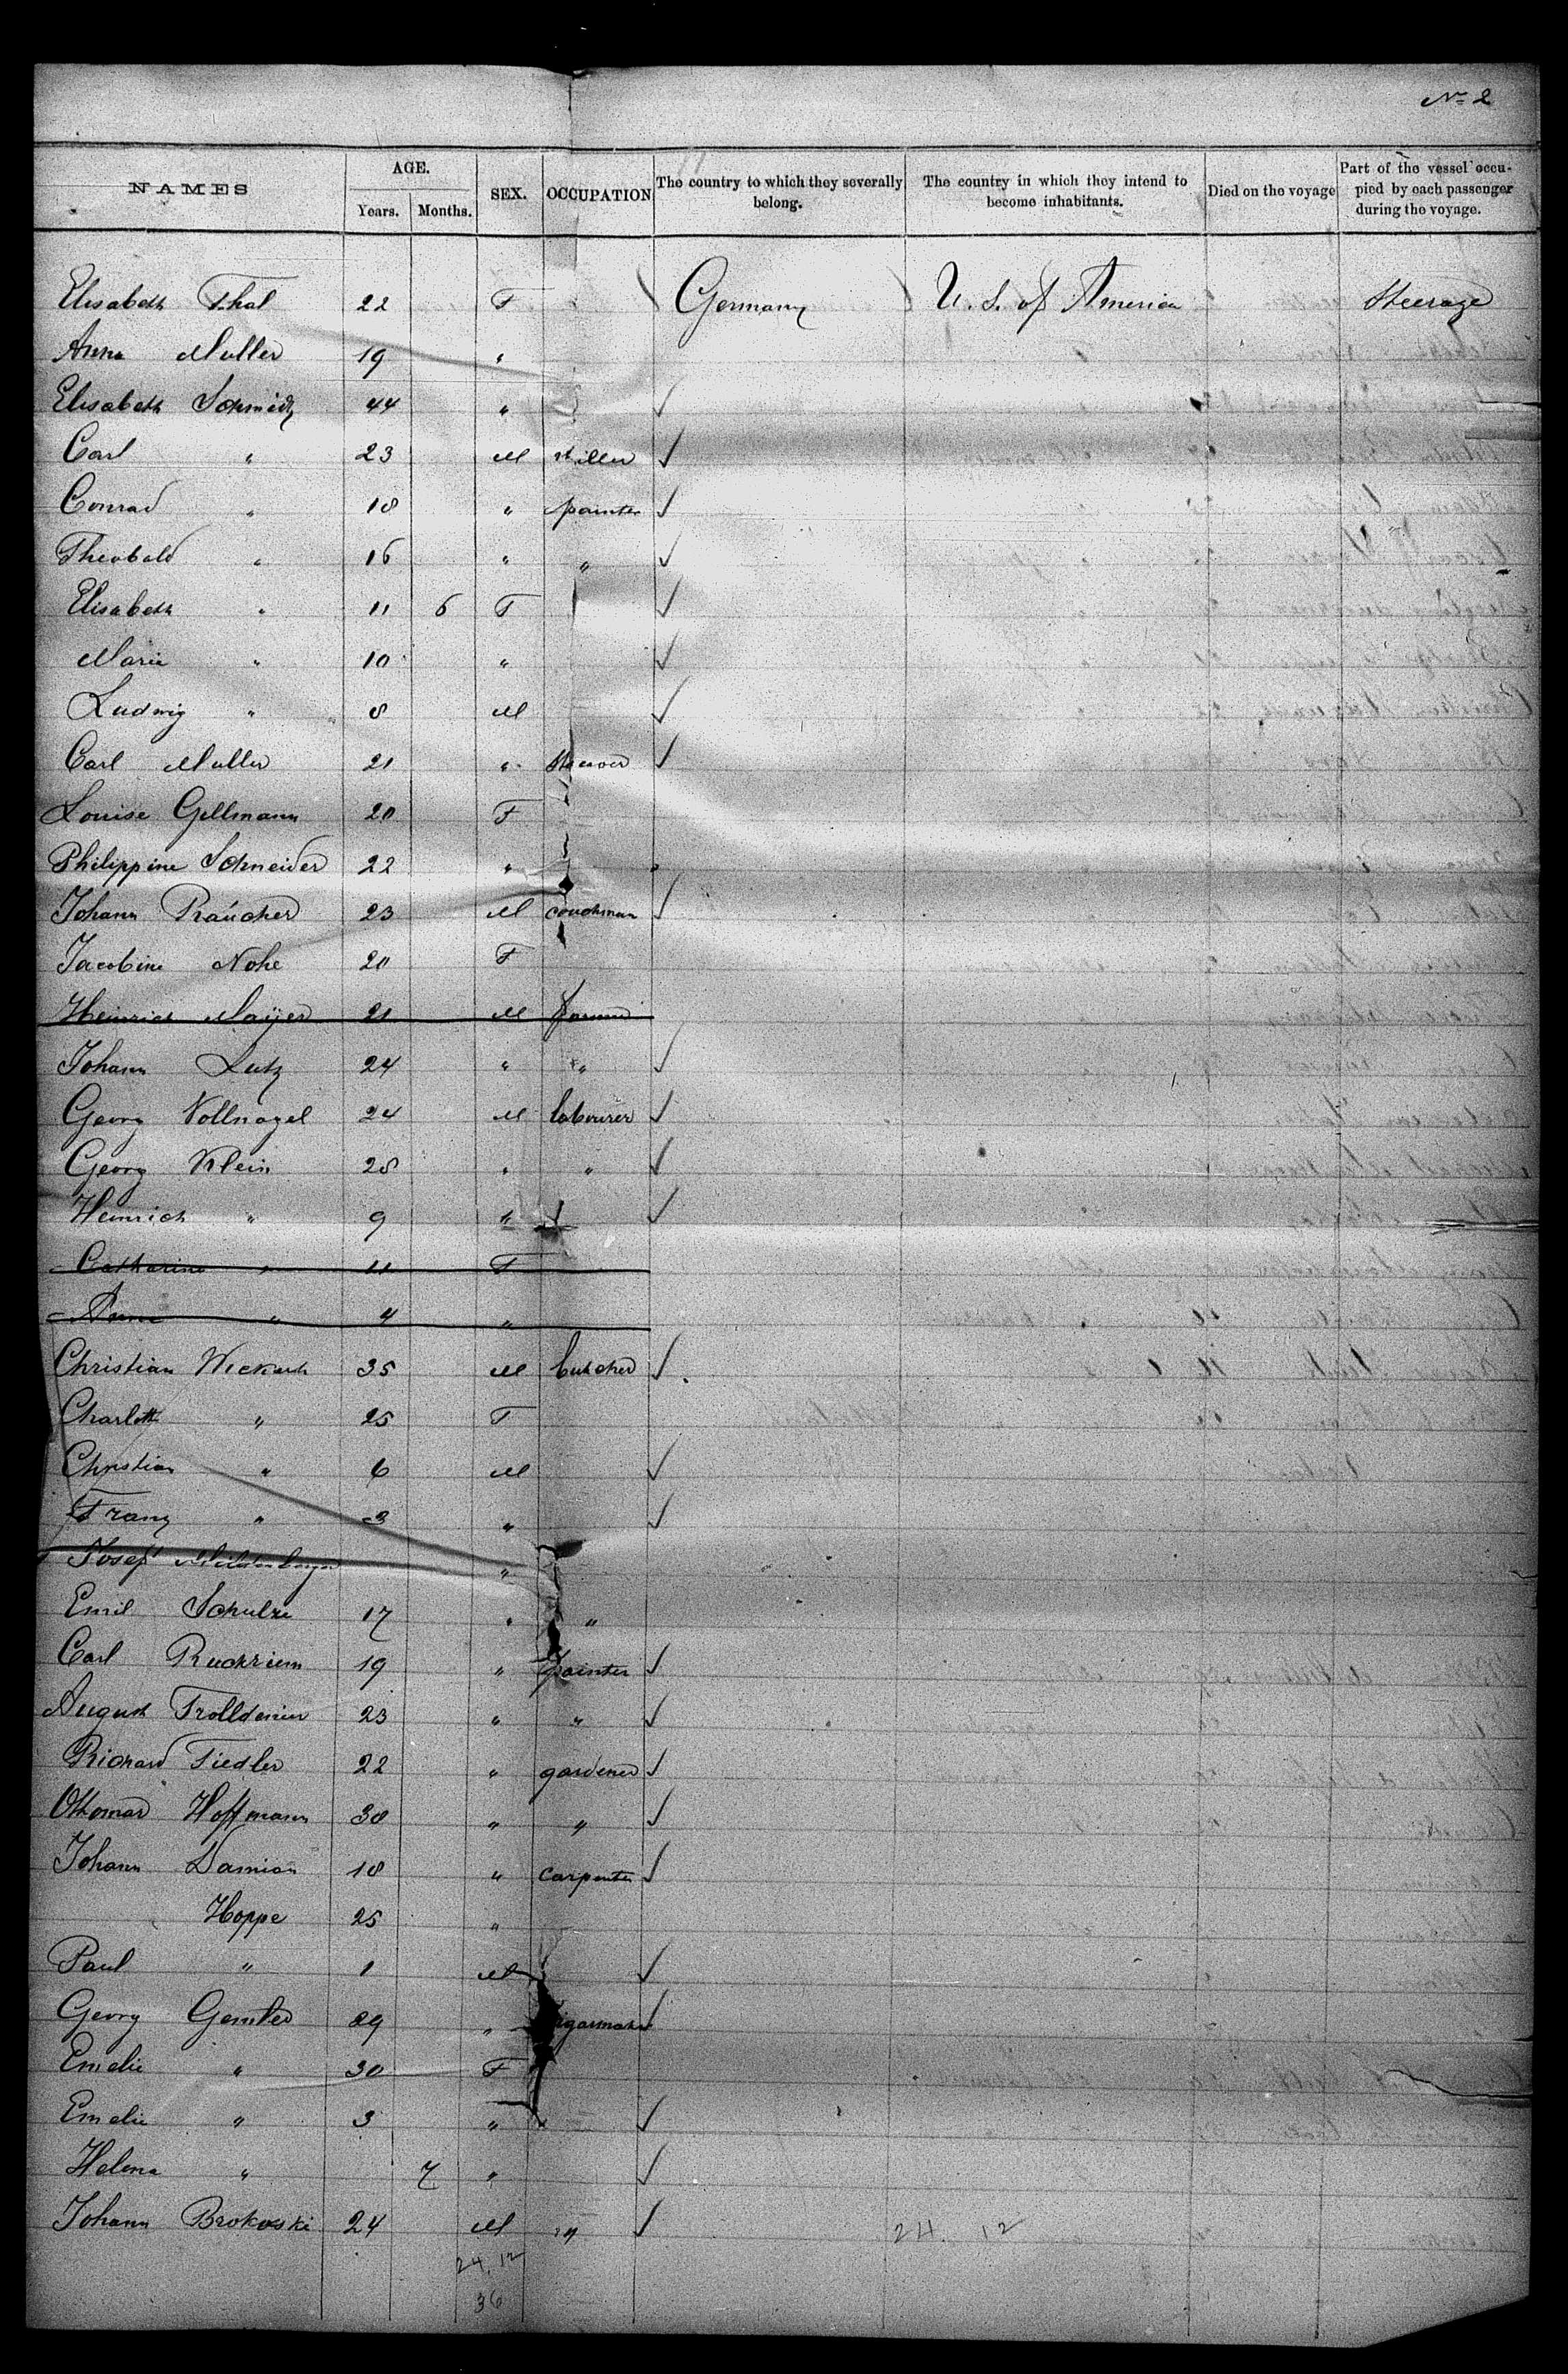 No 2
NAMES AGE. Years. Months. SEX. OCCUPATION The country to which they severally belong. The country in which they intend to become inhabitants. Died on the voyage Part of the vessel occupied by each passenger during the voyage.
Elisabeth Thal 22 F Germany U. S. of America Steerage
Anna Muller 19 "
Elisabeth Schmidt 44 "
Carl " 23 M
Conrad " 18 " painter
Theobald " 16 " "
Elisabeth " 11 6 F
Marie " 10 "
Ludwig " 8 M
Carl Muller 21 "
Louise Gellmann 20 F
Philippine Schneider 22 "
Johann Raucher 23 M coachman
Jacobine Nohe 20 F
Heinrich Mayer 21 M farmer
Johann Lutz 24 " "
Georg Vollnagel 24 M labourer
Georg Klein 28 " "
Heinrich " 9 "
Catharine " 11 F
Anna " 4 "
Christian Wickert 35 M butcher
Charlotte " 25 F
Christian " 6 M
Franz " 3 "
Josef "
Emil Schulze 17 " "
Carl Ruckriem 19 " painter
August Trolldenier 23 " "
Richard Fiedler 22 " gardener
Ottomar Hoffmann 30 " "
Johann Damian 18 " carpenter
Hoppe 25 "
Paul " 1 M
Georg Gemler 29 " cigarmaker
Emelie " 30 F
Emelie " 3 "
Helena " 7 "
Johann Brokoski 24 M "
24. 12
24. 12
36